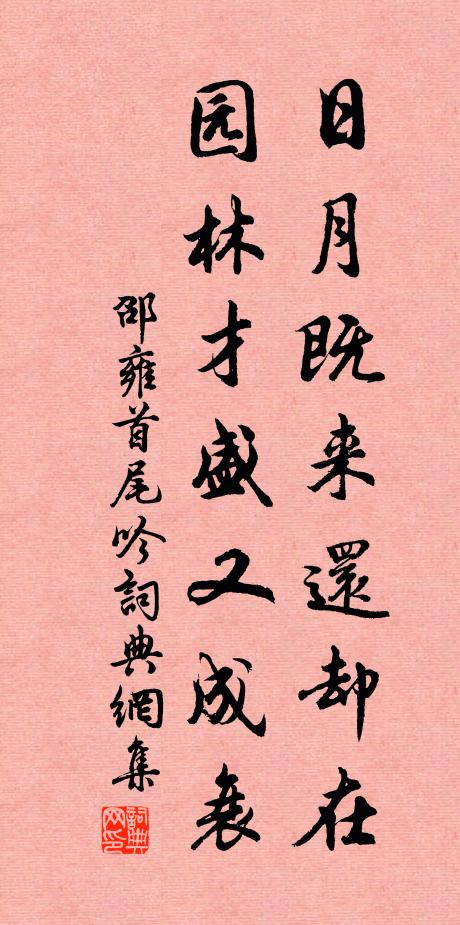 日月既来還却在
园林才盛又成衰
邵雍首尾吟詞典網集
詞典网印